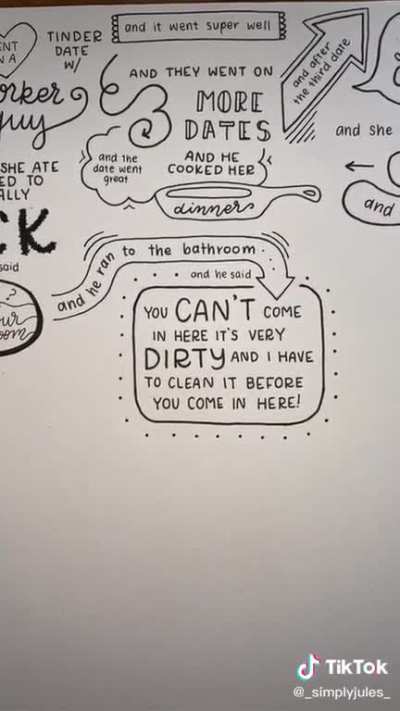 TINDER
DATE
W/
and it went super well
AND THEY WENT ON
3
MORE
DATES
and the
date went
great
AND HE
COOKED HER
dinner
and after
the third date
and she
and
SHE ATE
ED TO
ALLY
CK
said
and he ran to the bathroom
and he said
YOU CAN'T COME
IN HERE IT'S VERY
DIRTY AND I HAVE
TO CLEAN IT BEFORE
YOU COME IN HERE!
TikTok
@_simplyjules_